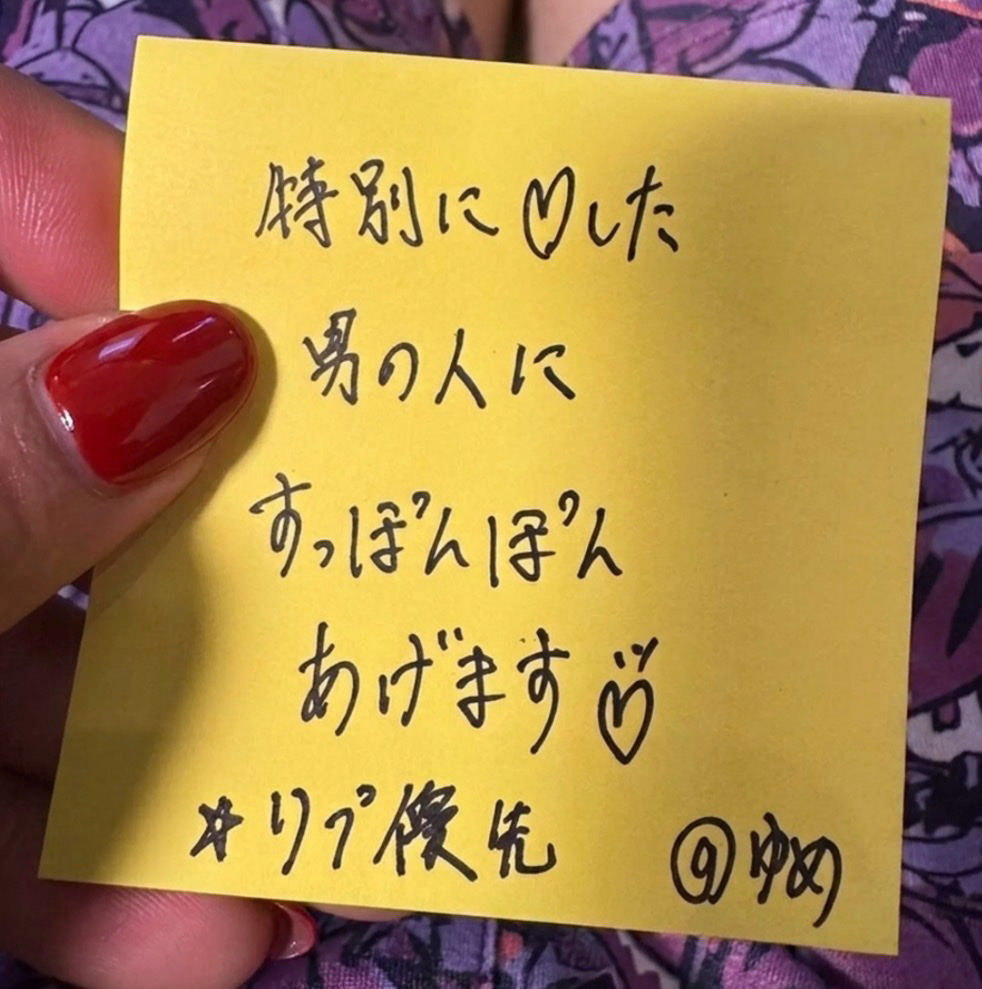 特別に♡した
男の人に
すっぽんぽん
あげます♡
#リプ優先 @ゆめ